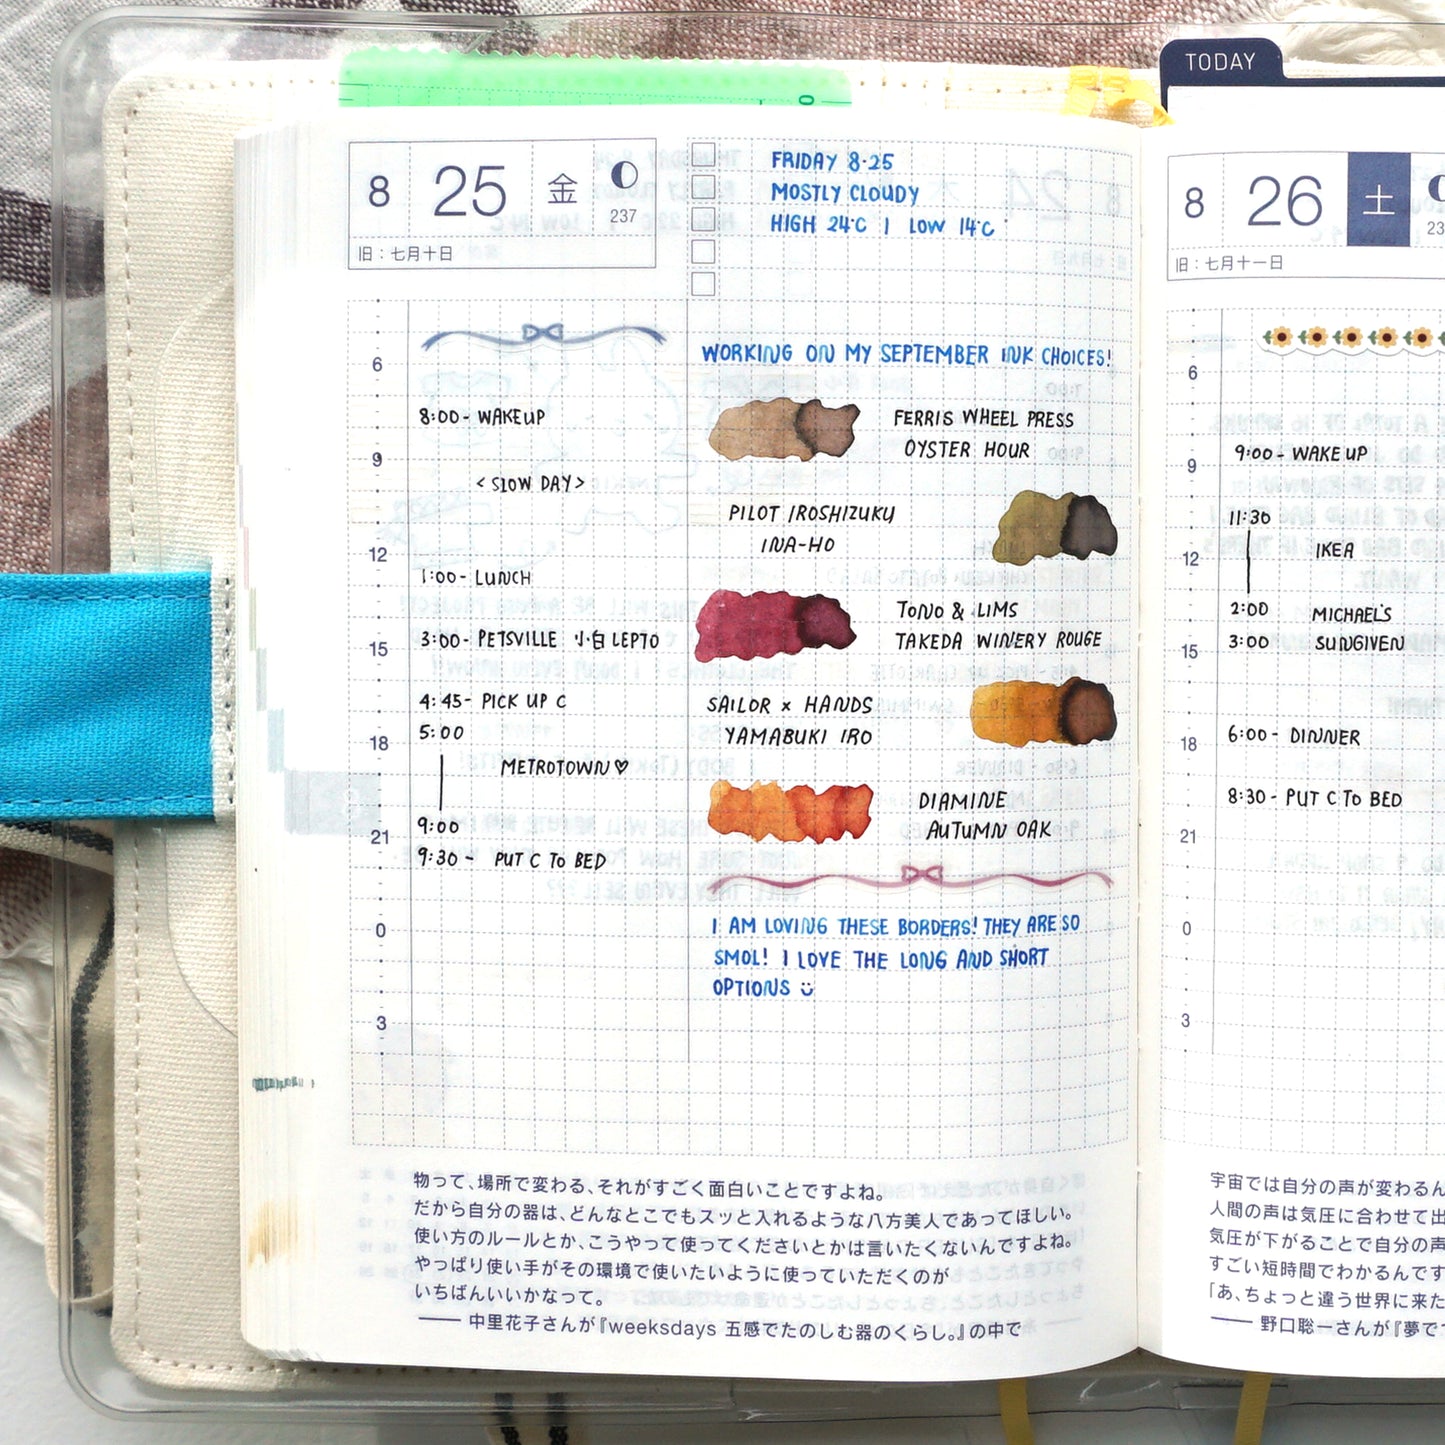 TODAY
8 25 金
237
旧：七月十日
FRIDAY 8·25
MOSTLY CLOUDY
HIGH 24°C | LOW 14°C
6
9
12
15
18
21
0
3
8:00- WAKE UP
<SLOW DAY>
1:00- LUNCH
3:00- PETSVILLE 小白 LEPTO
4:45- PICK UP C
5:00
METROTOWN♡
9:00
9:30 - PUT C TO BED
WORKING ON MY SEPTEMBER INK CHOICES!
FERRIS WHEEL PRESS
OYSTER HOUR
PILOT IROSHIZUKU
INA-HO
TONO & LIMS
TAKEDA WINERY ROUGE
SAILOR × HANDS
YAMABUKI IRO
DIAMINE
AUTUMN OAK
I AM LOVING THESE BORDERS! THEY ARE SO
SMOL! I LOVE THE LONG AND SHORT
OPTIONS
物って、場所で変わる、それがすごく面白いことですよね。
だから自分の器は、どんなとこでもスッと入れるような八方美人であってほしい。
使い方のルールとか、こうやって使ってくださいとかは言いたくないんですよね。
やっぱり使い手がその環境で使いたいように使っていただくのが
いちばんいいかなって。
―― 中里花子さんが『weeksdays 五感でたのしむ器のくらし。』の中で
8 26 土
23
旧：七月十一日
6
9
12
15
18
21
0
3
9:00- WAKE UP
11:30
IKEA
2:00 MICHAEL'S
3:00 SUNGIVEN
6:00- DINNER
8:30- PUT C TO BED
宇宙では自分の声が変わるん
人間の声は気圧に合わせて出
気圧が下がることで自分の声
すごい短時間でわかるんです
「あ、ちょっと違う世界に来た
―― 野口聡一さんが『夢で